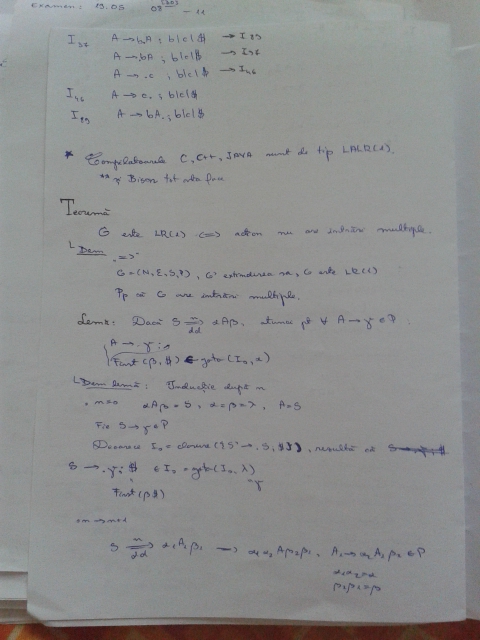 Examen: 19.05
I37 A → b.A ; b|c|$ → I89
A → .bA ; b|c|$ → I37
A → .c ; b|c|$ → I46
I46 A → c. ; b|c|$
I89 A → bA. ; b|c|$
* Compilatoarele C, C++, JAVA sunt de tip LALR(1).
** Bison tot asta face
Teoremă
G este LR(1) <=> action nu are intrări multiple.
Dem =>
G = (N, Σ, S, P), G' extinderea sa, G este LR(1)
Pp că G are intrări multiple.
Lemă: Dacă S =>n dd αAβ, atunci pt ∀ A → γ ∈ P
A → .γ ;
First(β$) ∈ goto(I0, α)
Dem lemă: Inducție după n
n=0 αAβ = S, α=β=λ, A=S
Fie S → γ ∈ P
Deoarece I0 = closure({S' → .S, $}), rezultă că
S → .γ; $ ∈ I0 = goto(I0, λ)
First(β$)
n → n+1
S =>n dd α1A1β1 → α1α2Aβ2β1, A1 → α2Aβ2 ∈ P
α1α2=α
β2β1=β